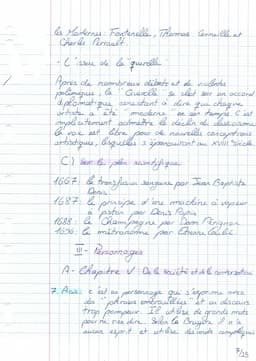 les Modernes: Fontenelle, Thomas Corneille et
Charles Perrault.
- L'issue de la querelle
Après de nombreux débats et de violentes
polémiques, la "Querelle" se clôt sur un accord
diplomatique consistant à dire que chaque
artiste a été "moderne" en son temps. C'est
implicitement admettre le déclin du classicisme
la voie est libre pour de nouvelles conceptions
artistiques, lesquelles s'épanouiront au XVIIIe siècle.
C) Sur le plan scientifique
1667: la transfusion sanguine par Jean Baptiste
Denis.
1687: le principe d'une machine à vapeur
à piston par Denis Papin
1688: le Champagne par Dom Pérignon
1696: le métronome par Etienne Loulié
III - Personnages
A - Chapitre V De la société et de la conversation
7. Acis: c'est un personnage qui s'exprime avec
des "phrases embrouillées" et un discours
trop pompeux. Il utilise de grands mots
pour ne rien dire. Selon La Bruyère il n'a
aucun esprit et utilise des mots compliqués
7/25